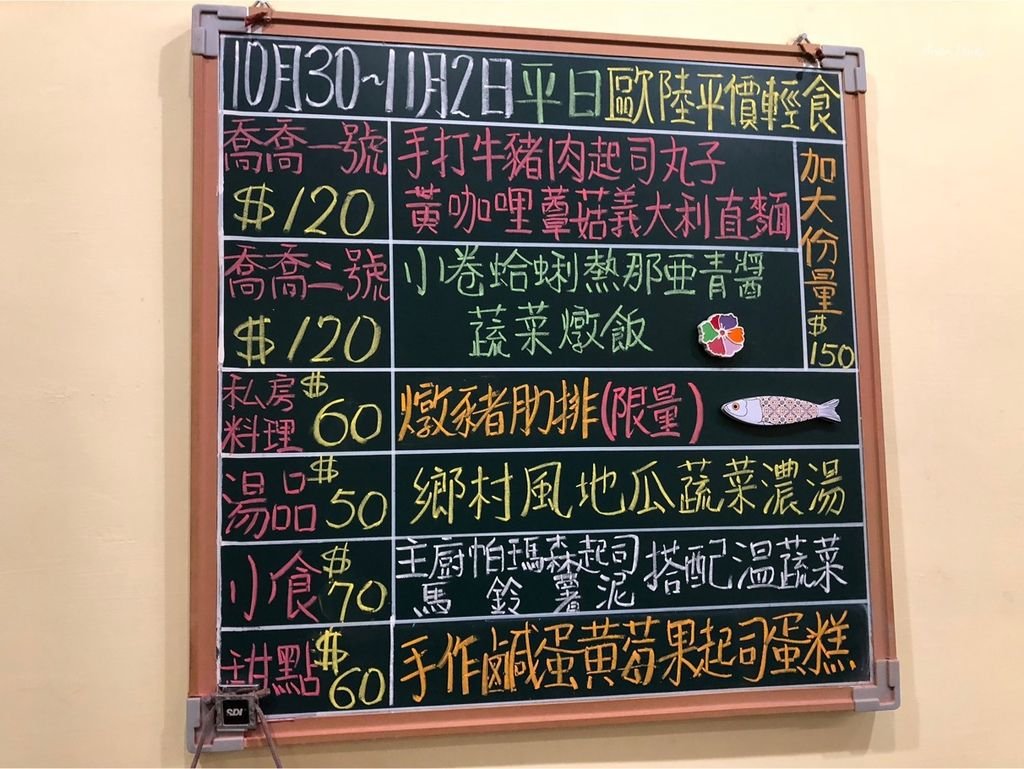 10月30~11月2日平日歐陸平價輕食
喬喬一號
$120
手打牛豬肉起司丸子
黃咖哩蕈菇義大利直麵
加大份量
$150
喬喬二號
$120
小卷蛤蜊熱那亜青醬
蔬菜燉飯
私房料理
$60
燉豬肋排(限量)
湯品
$50
鄉村風地瓜蔬菜濃湯
小食
$70
主廚帕瑪森起司
馬鈴薯泥
搭配溫蔬菜
甜點
$60
手作鹹蛋黃莓果起司蛋糕
SDI